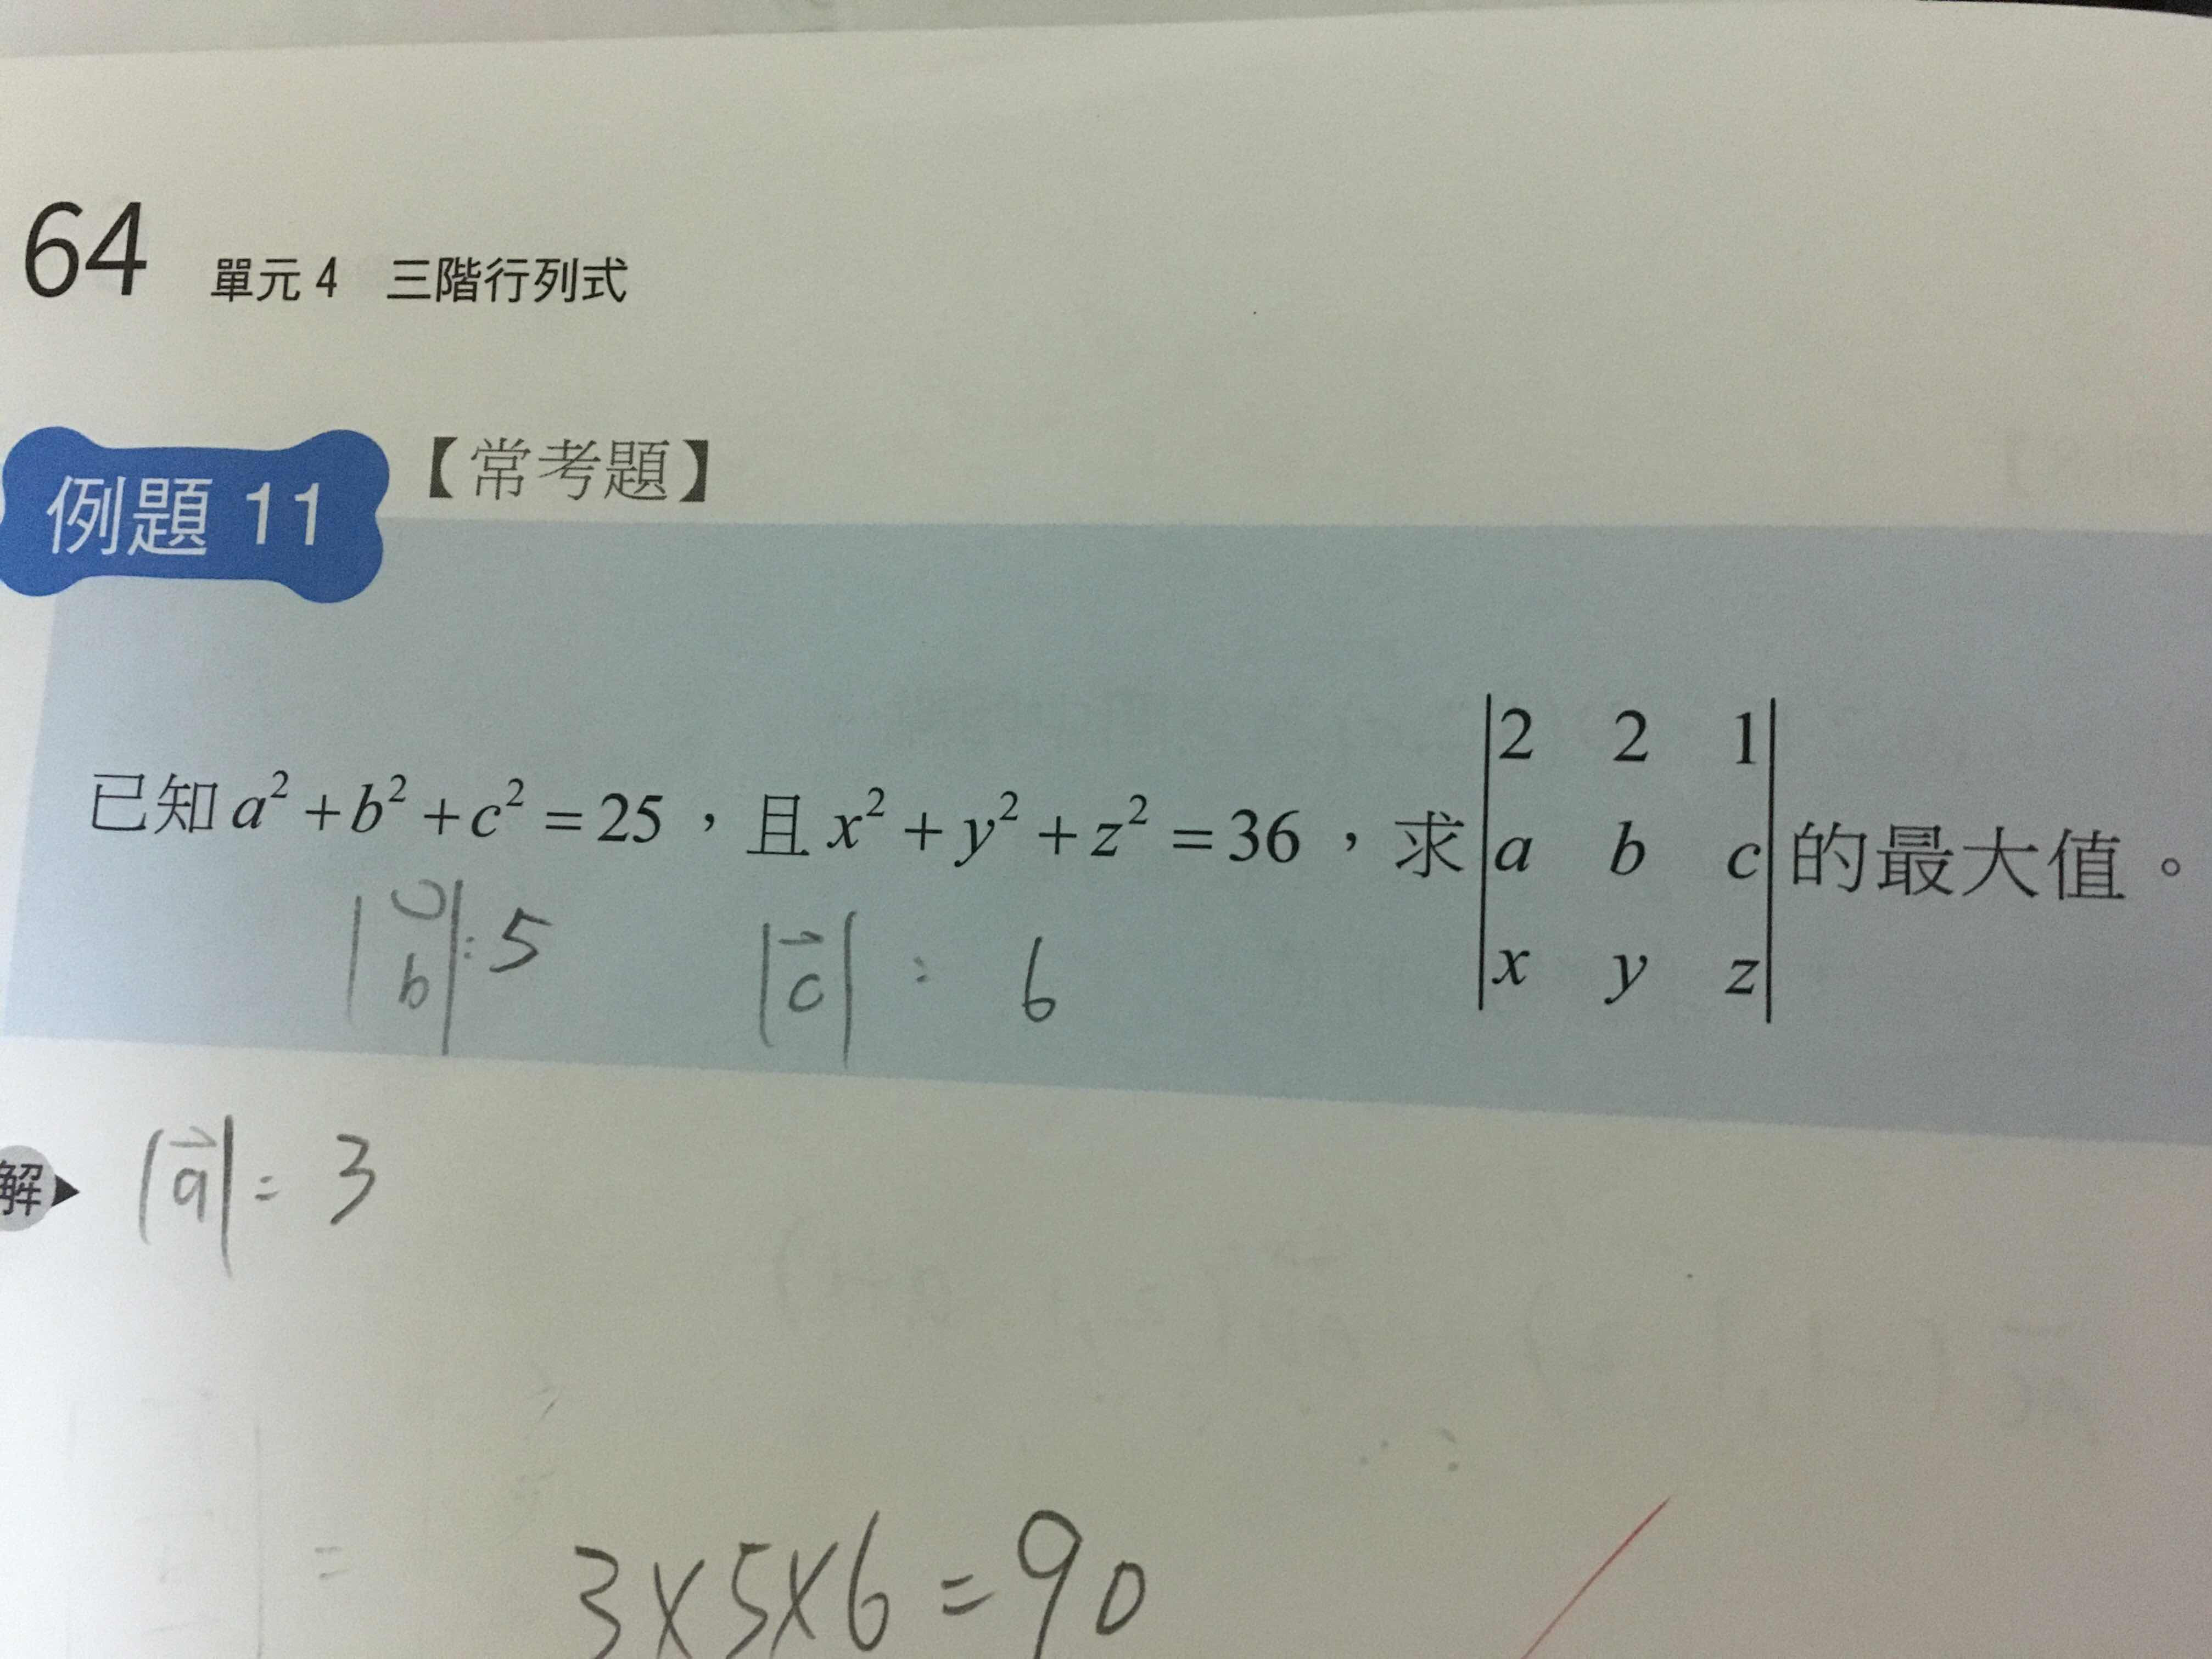 64 單元 4 三階行列式
例題 11 【常考題】
已知 a² + b² + c² = 25,且 x² + y² + z² = 36,求 |2 2 1; a b c; x y z| 的最大值。
|b| = 5 |c⃗| = 6
解▶ |a⃗| = 3
= 3×5×6 = 90